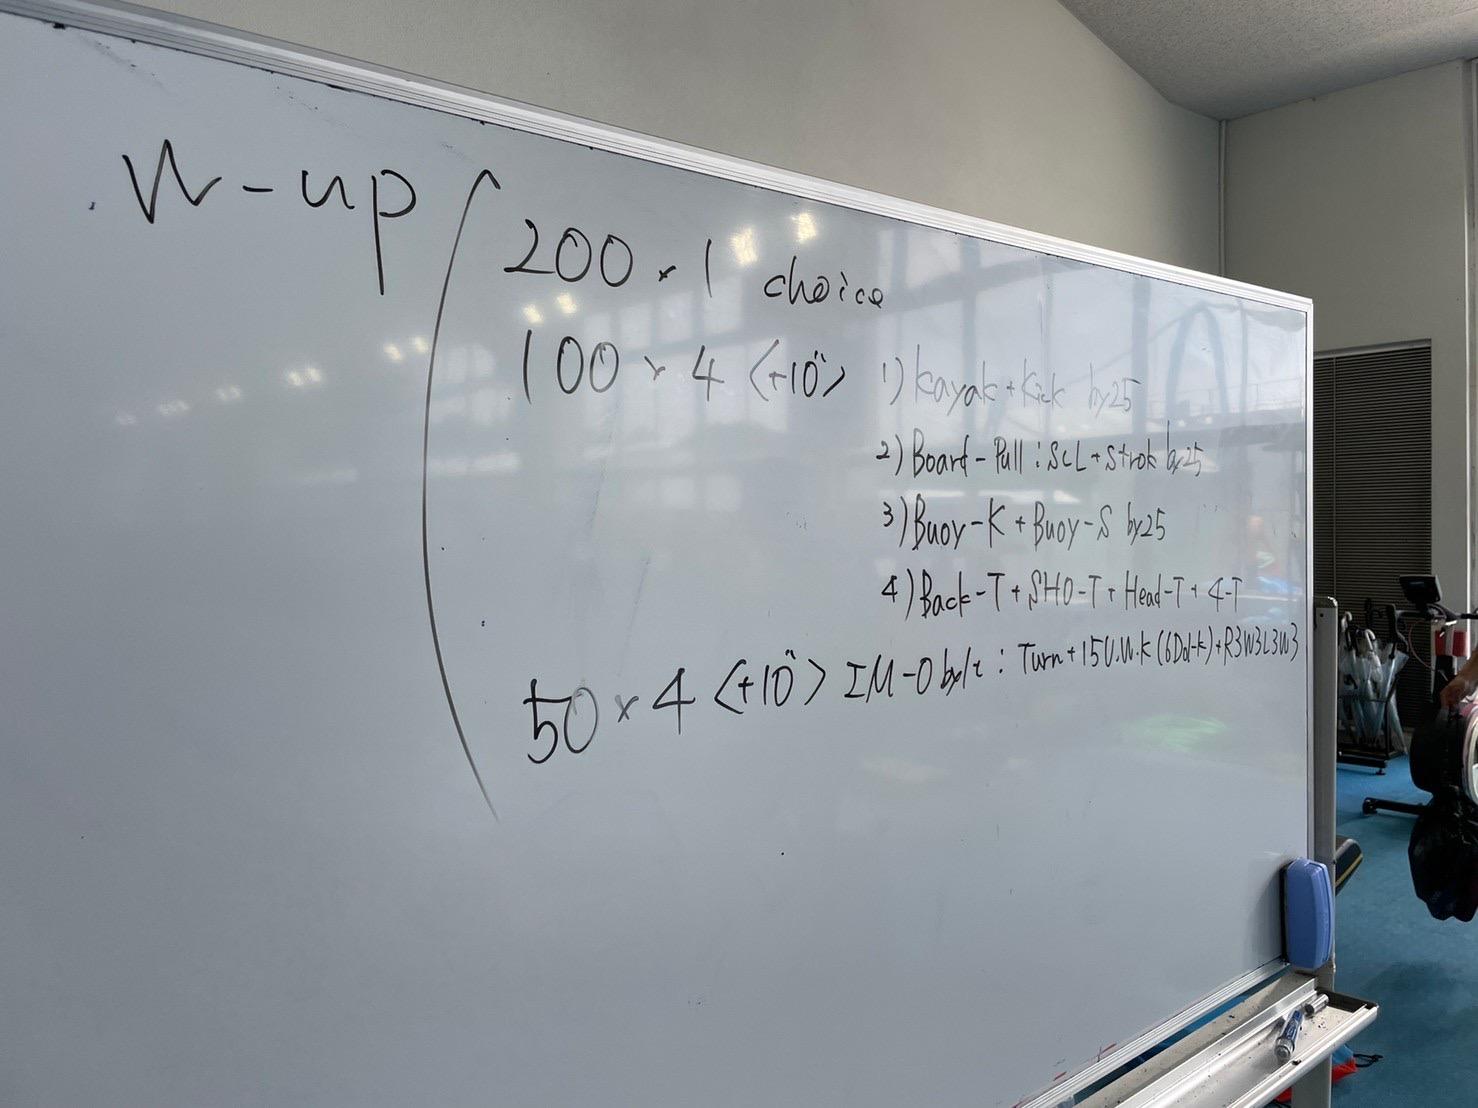 W-up
200 × 1 choice
100 × 4 <+10"> 1) Kayak + Kick by25
2) Board-Pull : SCL + Strok by25
3) Buoy-K + Buoy-S by25
4) Back-T + SHO-T + Head-T + 4-T
50 × 4 <+10"> IM-O by1t : Turn + 15U.W.K (6Dol-k) + R3W3L3W3